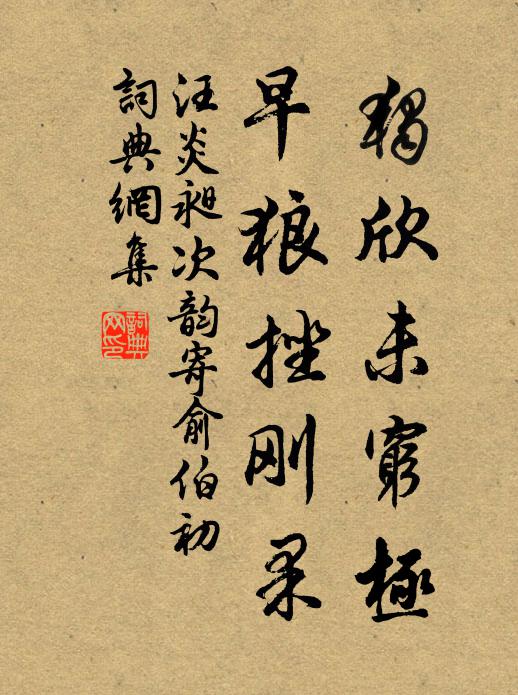 獨欣未窮極
早狼挫刚果
汪炎昶次韵寄俞伯初
詞典網集
詞典网印